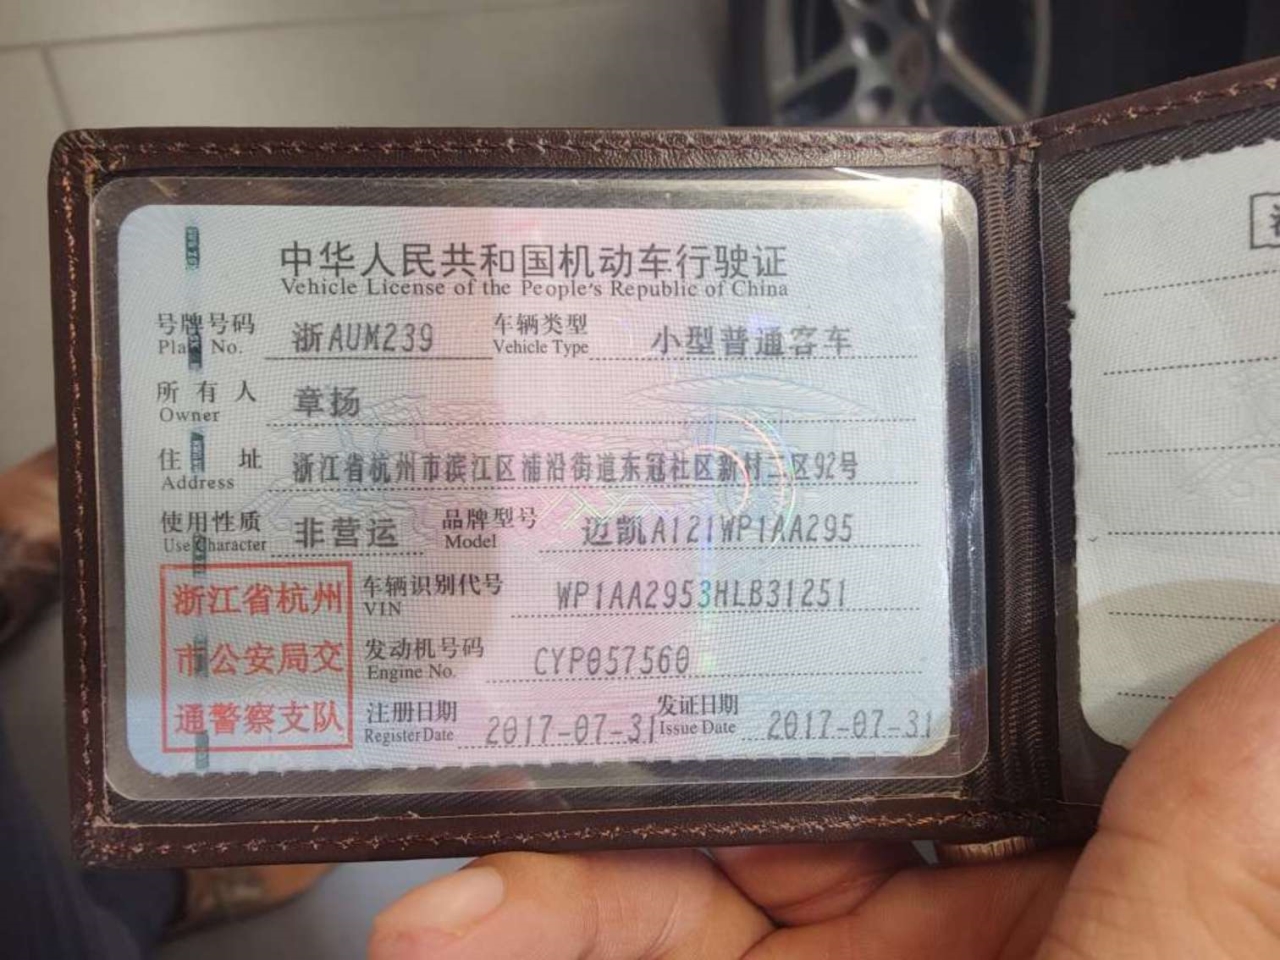 中华人民共和国机动车行驶证
Vehicle License of the People's Republic of China
号牌号码 浙AUM239 车辆类型 小型普通客车
Plate No. Vehicle Type
所有人 章扬
Owner
住址 浙江省杭州市滨江区浦沿街道东冠社区新村二区92号
Address
使用性质 非营运 品牌型号 迈凯A121WP1AA295
Use Character Model
车辆识别代号 WP1AA2953HLB31251
VIN
发动机号码 CYP057560
Engine No.
注册日期 2017-07-31 发证日期 2017-07-31
Register Date Issue Date
浙江省杭州
市公安局交
通警察支队